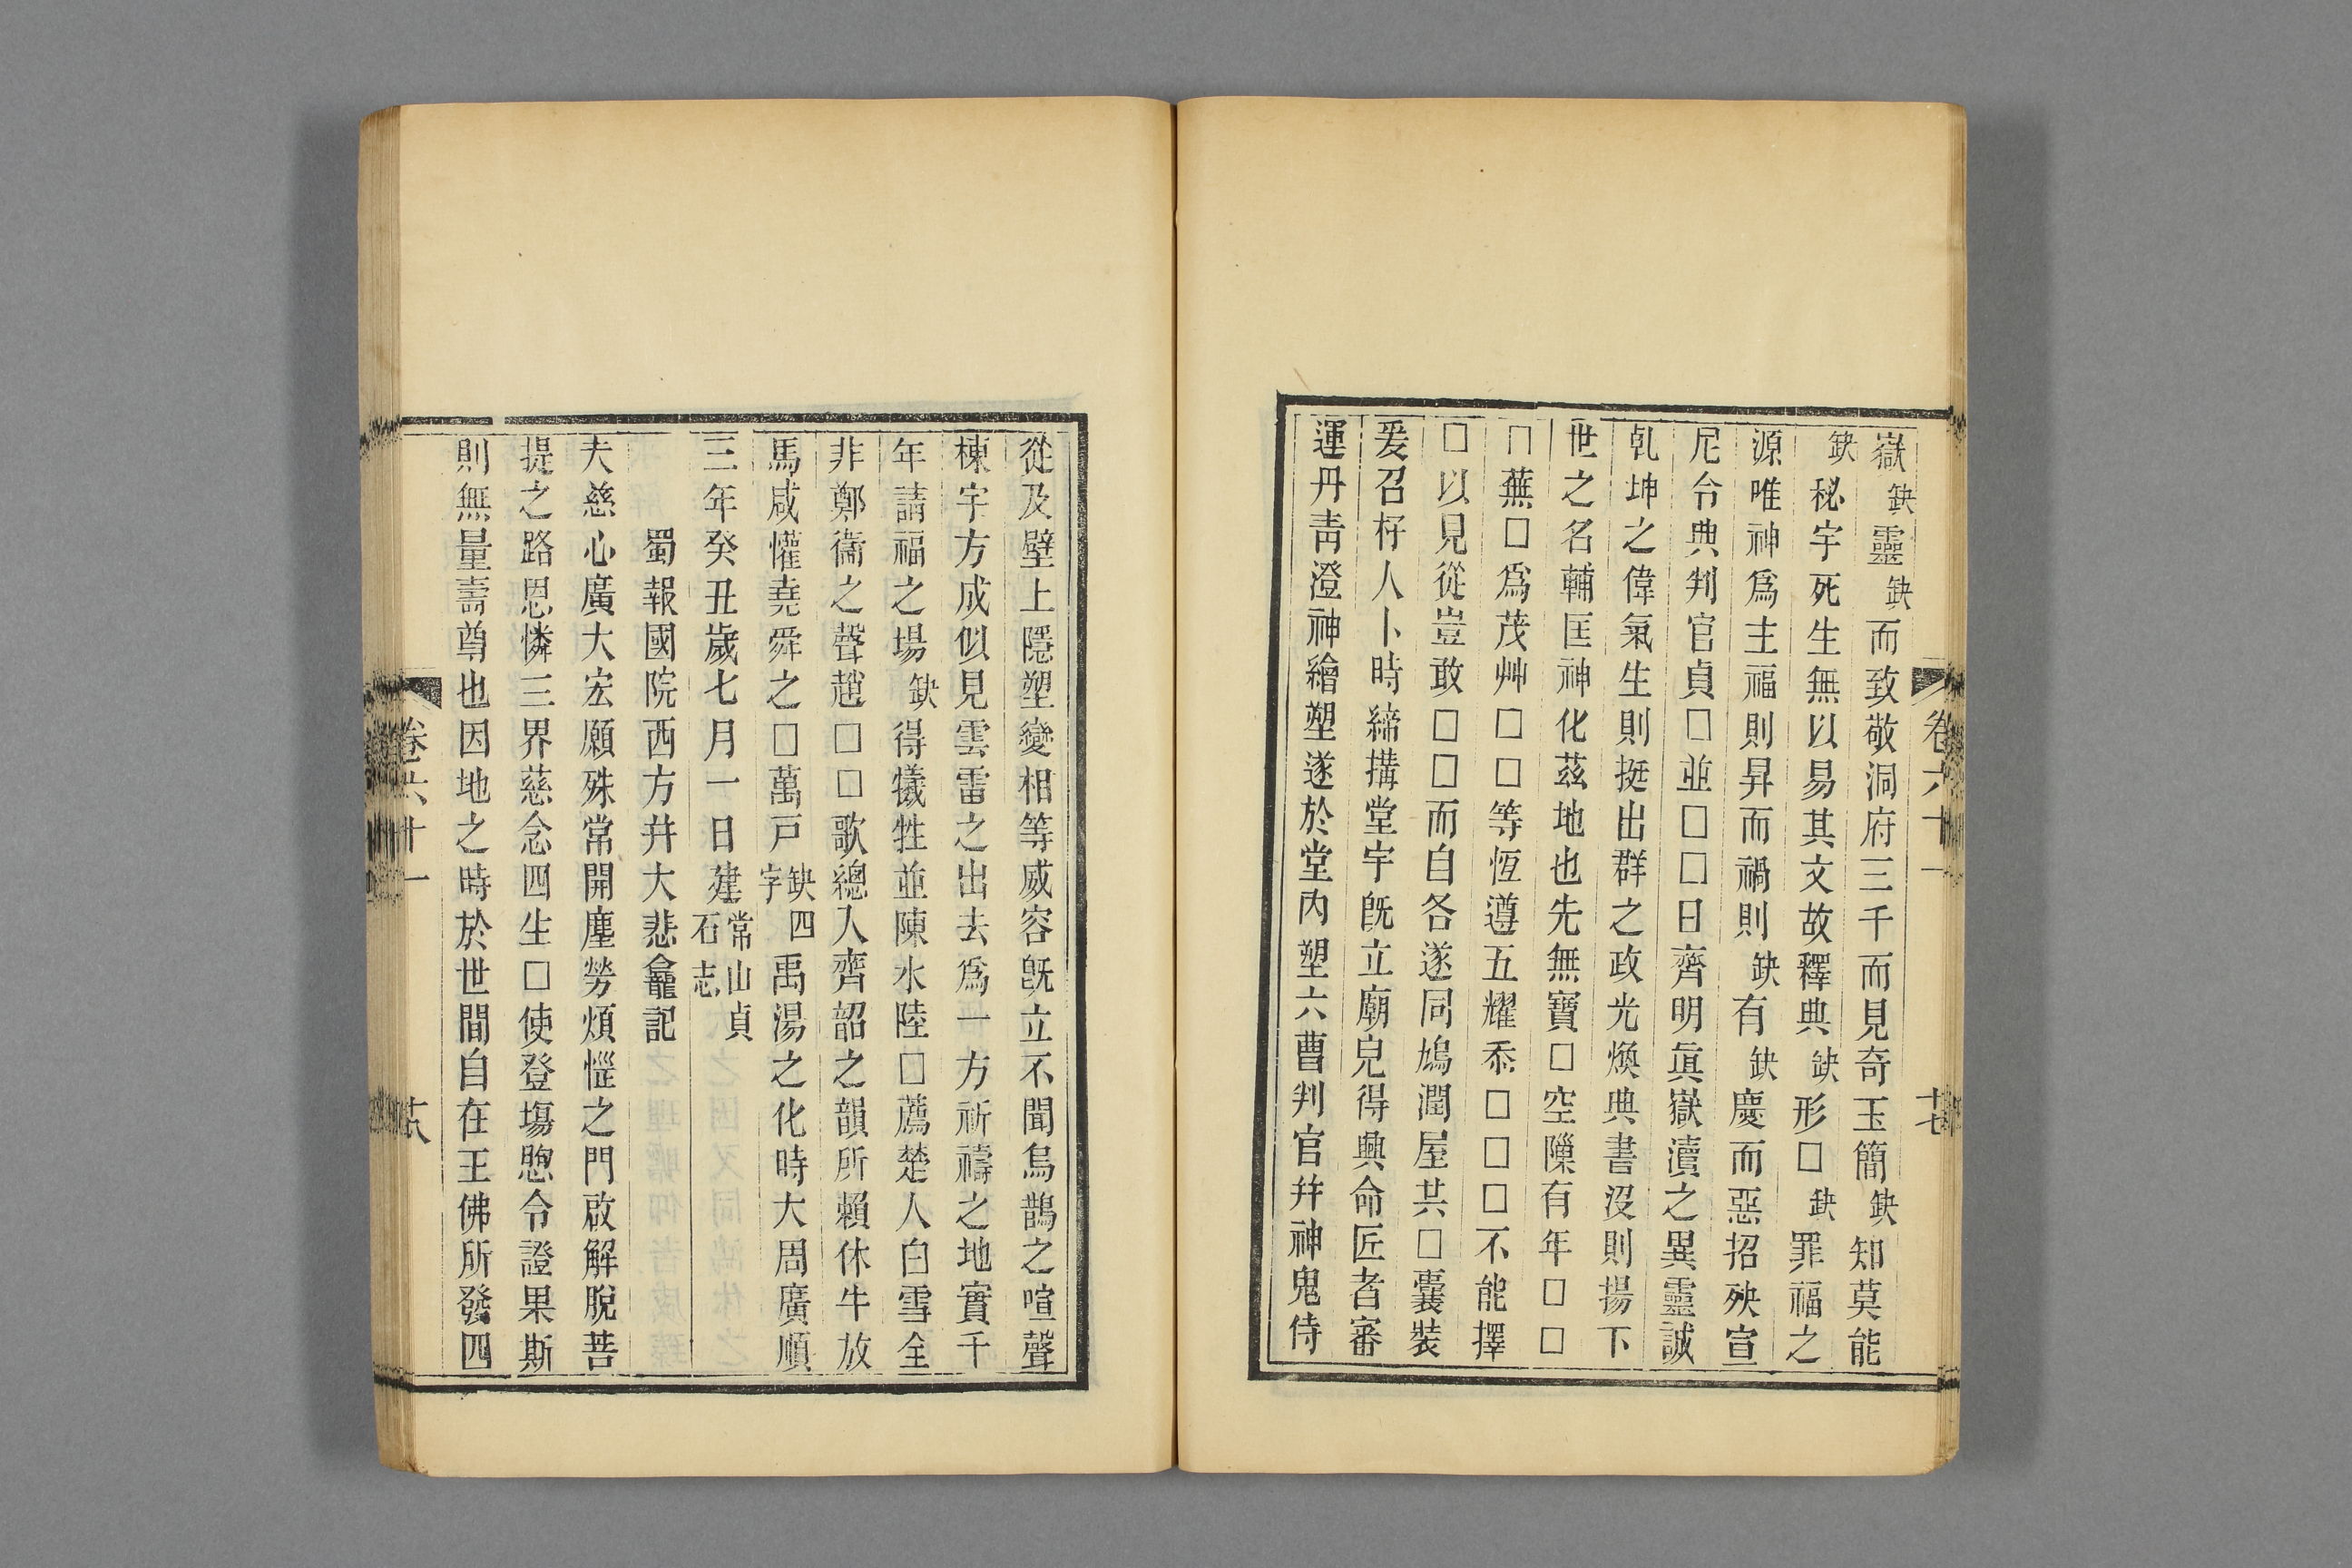 嶽缺靈缺而致敬洞府三千而見奇玉簡缺知莫能
缺秘宇死生無以易其文故釋典缺形□缺罪福之
源唯神爲主福則昇而禍則缺有缺慶而惡招殃宣
尼令典判官貞□並□□日齊明眞嶽瀆之異靈誠
乹坤之偉氣生則挺出群之政光煥典書沒則揚下
世之名輔匡神化茲地也先無寶□空隟有年□□
□蕪□爲茂艸□□等恆遵五耀忝□□□不能擇
□以見從豈敢□□而自各遂同鳩潤屋其□囊裝
爰召杍人卜時締搆堂宇旣立廟皃得興命匠者審
運丹靑澄神繪塑遂於堂內塑六曹判官幷神鬼侍
卷六十一
十七
從及壁上隱塑變相等威容旣立不聞鳥鵲之喧聲
棟宇方成似見雲雷之出去爲一方祈禱之地實千
年請福之場缺得犠牲並陳水陸□薦楚人白雪全
非鄭衞之聲趙□□歌總入齊韶之韻所賴休牛放
馬咸懽堯舜之□萬戸缺四字禹湯之化時大周廣順
三年癸丑歲七月一日建常山貞石志
蜀報國院西方幷大悲龕記
夫慈心廣大宏願殊常開塵勞煩惱之門啟解脫菩
提之路恩憐三界慈念四生□使登塲慜令證果斯
則無量壽尊也因地之時於世間自在王佛所發四
卷六十一
十八